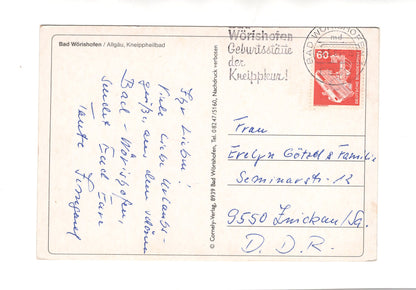 Bad Wörishofen / Allgäu, Kneippheilbad
Ihr Lieben!
Viele liebe Urlaubs-
grüße, aus dem schönen
Bad-Wörishofen,
sendet Euch Eure
Tante Irmgard
© Cornely-Verlag, 8939 Bad Wörishofen, Tel. 08247/5160, Nachdruck verboten
Wörishofen
Geburtsstätte
der
Kneippkur!
BAD WÖRISHOFEN
md
60
DEUTSCHE BUNDESPOST
Frau
Evelyn Götzel & Familie
Seminarstr. 12
9550 Zwickau/Sa.
D. D. R.